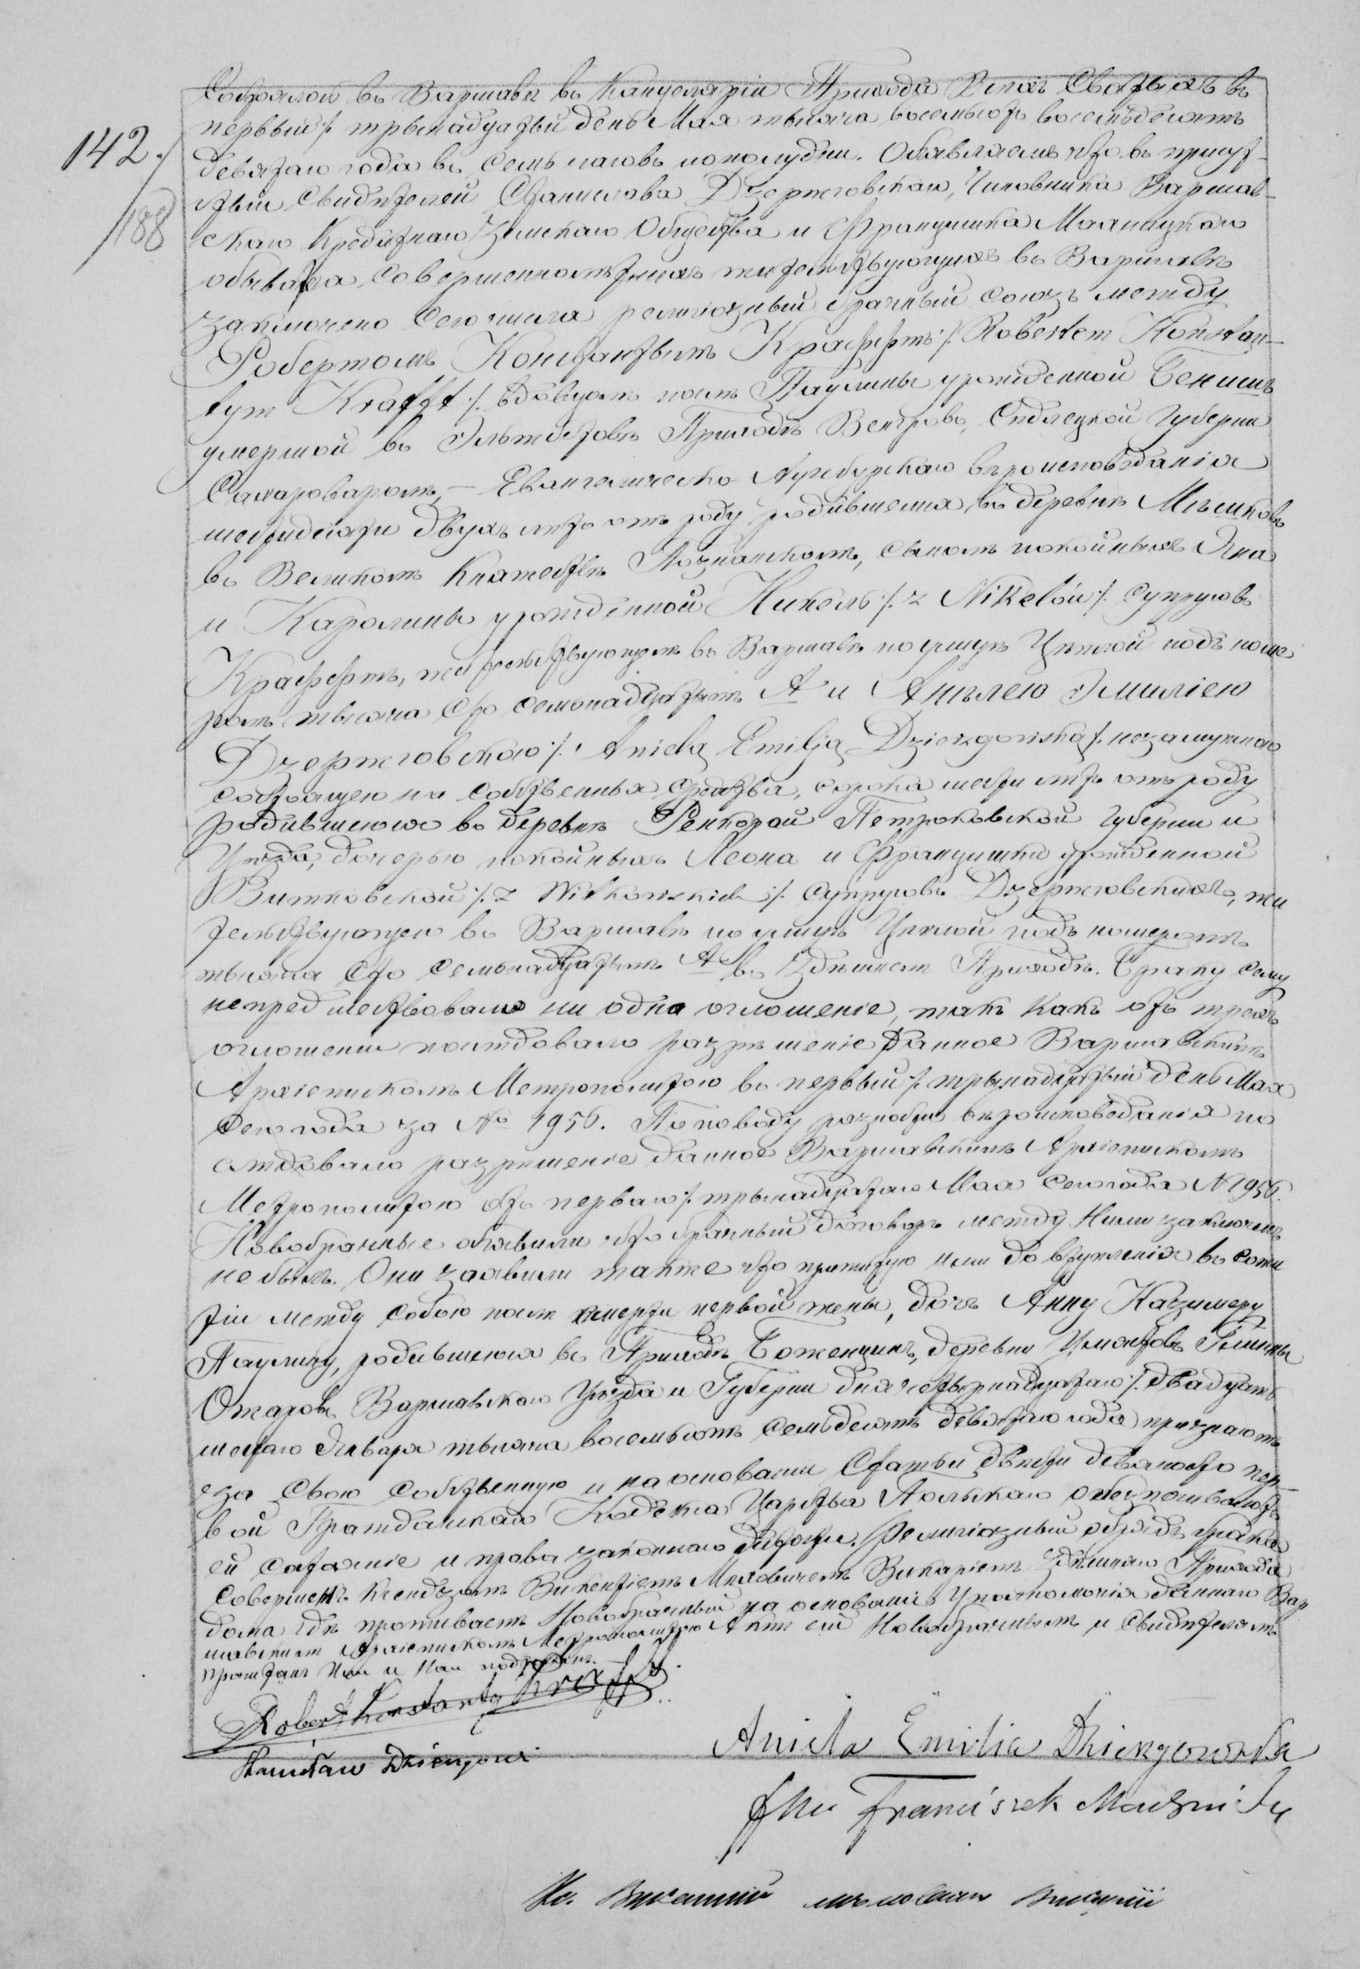 142.
188
Состоялось въ Варшавѣ въ Канцеляріи Прихода Всѣхъ Святыхъ въ
первый /: тринадцатый день Мая тысяча восемьсотъ восемьдесятъ
девятаго года въ семь часовъ пополудни. Объявляемъ что въ присут-
ствіи свидѣтелей Станислава Дзержговскаго, чиновника Варшав-
скаго Кредитнаго Земскаго Общества и Францишка
обывателя совершеннолѣтнихъ жительствующихъ въ Варшавѣ
заключено сего числа религіозный брачный союзъ между
Робертомъ Константымъ Краффтъ /: Robertem Konstan-
tym Krafft :/ вдовцомъ послѣ Паулины урожденной Бенишъ
умершой въ Эльжбѣтовѣ Приходѣ Венгровъ, Сѣдлецкой Губерніи
Сахароваромъ, — Евангелическо Аугсбургскаго вѣроисповѣданія
шестидесяти двухъ лѣтъ отъ роду родившимся въ деревнѣ
въ Великомъ Княжествѣ Познанскомъ, сыномъ покойныхъ Яна
и Каролины урожденной Никель /: z Nikelów /: супруговъ
Краффтъ, жительствующимъ въ Варшавѣ по улицѣ Цѣплой подъ номе-
ромъ тысяча сто семьнадцатымъ А и Анѣлею Эмиліею
Дзержговскою /: Anielą Emilją Dzierzgowską /: незамужнею
состоящею на собственныхъ средствахъ, сорока шести лѣтъ отъ роду
родившеюся въ деревнѣ Ренкорай Петроковской Губерніи и
Уѣзда, дочерью покойныхъ Леона и Францишки урожденной
Витковской /: z Witkowskich :/ супруговъ Дзержговскихъ, жи
тельствующею въ Варшавѣ по улицѣ Цѣплой подъ номеромъ
тысяча сто семьнадцатымъ А въ здѣшнемъ Приходѣ. Браку сему
непредшествовало ни одно оглошеніе, такъ какъ отъ трехъ
оглошеніи послѣдовало разрѣшеніе данное Варшавскимъ
Архіепископомъ Метрополитою въ первый /: тринадцатый день Мая
сего года за № 1956. По поводу разности вѣроисповѣданія по
слѣдовало разрѣшеніе данное Варшавскимъ Архіепископомъ
Метрополитою отъ перваго /: тринадцатаго Мая сего года № 1956.
Новобрачные объявили что брачный договоръ между ними заключенъ
не былъ. Они заявили также что прижитую ими до вступленія въ
между собою послѣ смерти первой жены, дочь Анну Казимеру
Паулину, родившеюся въ Приходѣ деревни Гмины
Ожаровъ Варшавскаго Уѣзда и Губерніи дня четырнадцатаго /: двадцать
шестаго Января тысяча восемьсотъ семьдесятъ девятаго года признаютъ
за свою собственную и на основаніи Статьи двѣсти девяносто пер-
вой Гражданскаго Кодекса Царства Польскаго обезпечиваютъ
ей состояніе и права законнаго дитяти. Религіозный обрядъ брака
совершенъ Ксендзомъ Викентіемъ Викаріемъ здѣшняго Прихода
дома гдѣ проживаетъ Новобрачный на основаніи Уполномочія даннаго Вар
шавскимъ Архіепископомъ Метрополитою Актъ сей Новобрачнымъ и Свидѣтелямъ
прочитанъ Ими и Нами подписанъ.
Robert Konstanty Krafft
Aniela Emilia Dzierzgowska
Stanisław
Franciszek